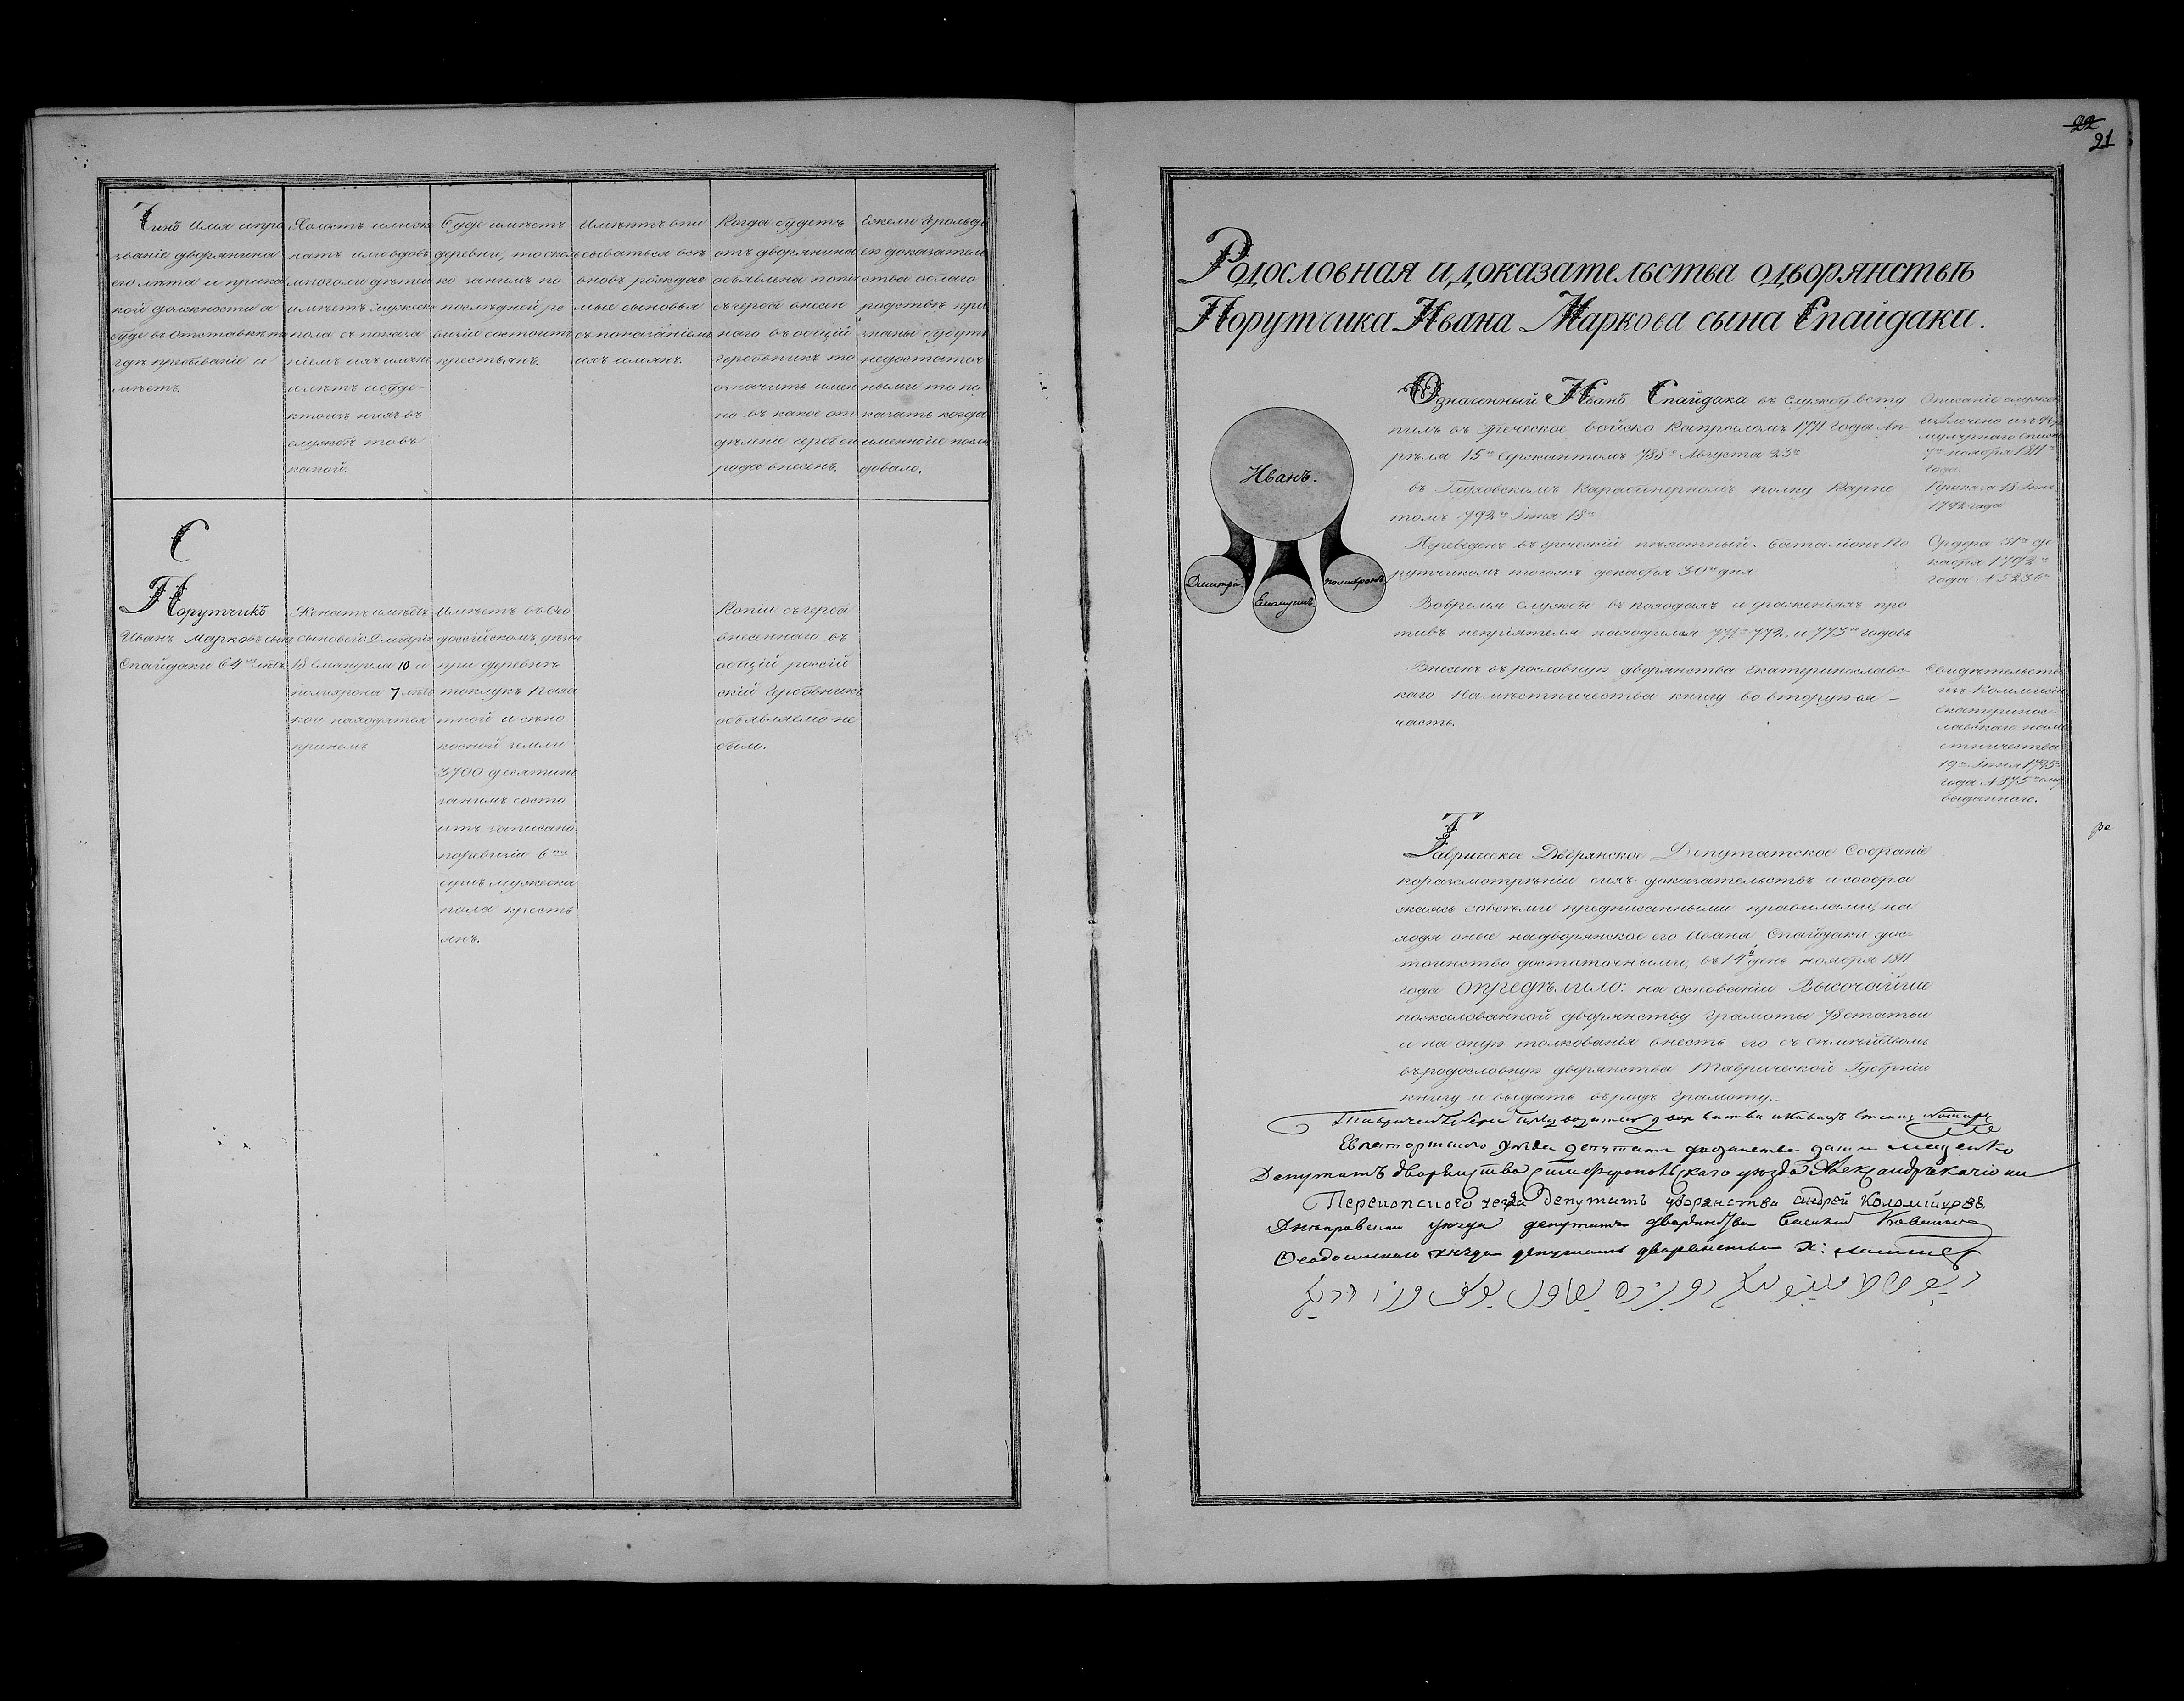 Чинъ Имя и про
званіе дворянина
его лѣта и при ка
кой должности а
буде въ отставкѣ то
гдѣ пребываніе и
мѣетъ.
Холостъ или же
натъ или вдовъ
много ли дѣтей
имѣетъ мужеска
пола съ показа
ніемъ ихъ имянъ
и лѣтъ и буде
кто изъ нихъ въ
службѣ то въ
какой.
Буде имѣетъ
деревни, то сколь
ко за нимъ по
послѣдней ре
визіи состоитъ
крестьянъ.
Имѣютъ впи
сываться всѣ
вновь рождае
мые сыновья
съ показаніемъ
ихъ имянъ.
Когда будетъ
отъ дворянина
объявлена копія
съ герба внесен
наго въ общій
гербовникъ то
означить имен
но въ какое от
дѣленіе гербъ его
рода внесенъ.
Ежели Герольдіи
ея доказатель
ства о благо
родствѣ при
знаны будутъ
недостаточ
ными то по
казать когда
именно не послѣ
довало.
С
Порутчикъ
Иванъ Марковъ сынъ
Спайдаки 64 лѣтъ
Женатъ имѣетъ
сыновей: Дмитрія
18 Емануила 10 и
полихрона 7 лѣтъ
кои находятся
при немъ
Имѣетъ въ Ѳео
досійскомъ уѣздѣ
при деревнѣ
токлукъ Паха
тной и сѣно
косной земли
3700 десятинъ
за нимъ состо
итъ записано
по ревизіи 6
душъ мужеска
пола кресть
янъ.
Копіи съ герба
внесеннаго въ
общій россій
скій Гербовникъ
объявляемо не
было.
22
21
Родословная и доказательства о дворянствѣ
Порутчика Ивана Маркова сына Спайдаки.
Иванъ.
Дмитрій.
Емануилъ
полихронъ
Означенный Иванъ Спайдака въ службу всту
пилъ въ Греческое войско Капраломъ 1771 года Ап
рѣля 15 Сержантомъ 788 Августа 23
въ Глуховскомъ Карабинерномъ полку Карне
томъ 792 Іюня 18
Переведенъ въ греческій пѣхотный баталіонъ По
рутчикомъ тогожъ декабря 30 дня
Вовремя службы въ походахъ и сраженіяхъ про
тивъ непріятеля находился 771 772 и 773 годовъ
Внесенъ въ рословную дворянства Екатеринославс
каго Намѣстничества книгу во вторую ея
часть.
Описаніе службы
извлечено изъ Фор
мулярнаго списка
7 ноября 1811
года.
Приказа 18 Іюня
1792 года
Ордера 31 де
кабря 1792
года N 3236
Свидѣтельство
изъ Коммисіи
екатеринос
лавскаго намѣ
стничества
19 Іюня 1795
года N 875 ему
выданнаго.
Таврическое Дворянское Депутатское Собраніе
по разсмотрѣніи сихъ доказательствъ и сообра
жаясь со всѣми предписанными правилами, на
ходя оные на дворянское его Ивана Спайдаки дос
тоинство достаточными, въ 14 день ноября 1811
года Опредѣлило: на основаніи Высочайше
пожалованной дворянству Грамоты 78 статьи
и на оную толкованія внесть его съ семействомъ
въ родословную дворянства Таврической Губерніи
книгу и выдать въ родъ Грамоту.
Евпаторійского уезда депутатъ дворянства
Депутатъ дворянства Симферопольскаго уезда Александръ Качіони
Перекопского уезда Депутатъ дворянства андрей Коломійцовъ
Днепровского уезда депутатъ дворянства Василий
Феодосийского уезда депутатъ дворянства